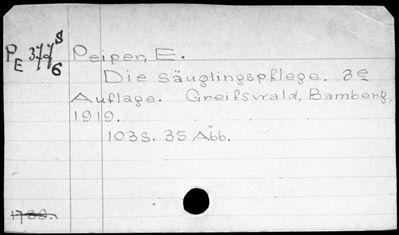 PE 377 S 6
Peiper, E.
Die Säuglingspflege. 8e
Auflage. Greifswald, Bamberg,
1919.
103S. 35 Abb.